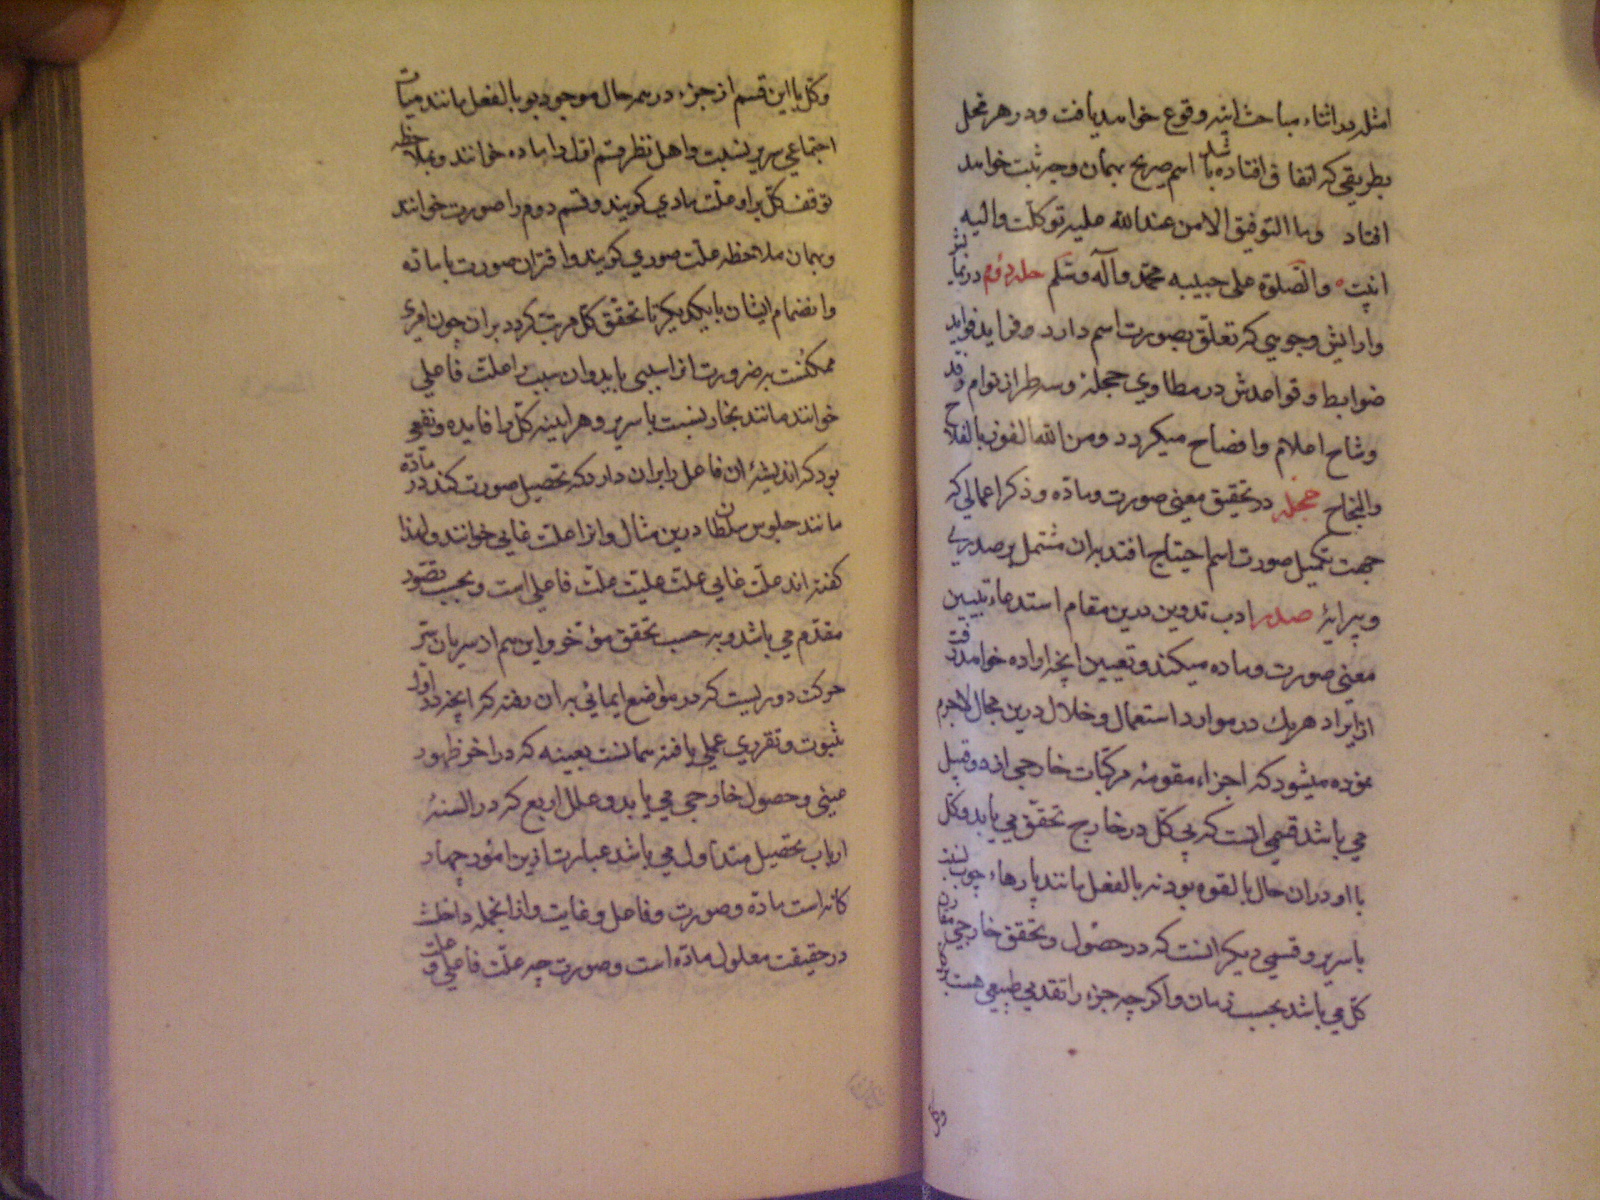 امثله در اثناء مباحث اتیه وقوع خواهد یافت و در هر محل
بطریقی که اتفاق افتاده باشد اسم صریح بهمان وجه ثبت خواهد
افتاد وما التوفیق الا من عند الله علیه توکلت والیه
انیب والصلوة علی حبیبه محمد وآله وسلم حله دوم در نمایش
وارایش وجوهی که تعلق بصورت اسم دارد وفراید فواید
ضوابط وقواعدش در مطاوی حجله وسه طراز توام وقد
وشاح اعلام وافضاح میکردد ومن الله الفوز بالفلاح
والنجاح حجله در تحقیق معنی صورت وماده وذکر اعمالی که
جهت تکمیل صورت اسم احتیاج افتد بران مشتمل بر صدری
وپیرایهٔ صدر ادب تدوین درین مقام استدعاء تبیین
معنی صورت وماده میکند وتعیین انچه اراده خواهد رفت
از ایراد هریک در موارد استعمال وخلال درین مجال لاجرم
نموده میشود که اجزاء مقومهٔ مرکبات خارجی از دو قبیل
می باشد قسمی انست که بی کل در خارج تحقق می یابد وکل
با او دران حال بالقوه بود نه بالفعل مانند پارهاء چوب بنسبت
با سریر وقسمی دیکر انست که در حصول وتحقق خارجی مقارن
کل می باشد بحسب زمان واکرچه جزء را تقدمی طبیعی هست بر
وکل
وکل با این قسم از جزء در همه حال موجود بود بالفعل مانند هیات
اجتماعی سریر بنسبت واهل نظر قسم اول را ماده خوانند وبملاحظه
توقف کل بر او علت مادی کویند وقسم دوم را صورت خوانند
وبهمان ملاحظه علت صوری کویند واقتران صورت با ماده
وانضمام ایشان با یکدیکر تا تحقق کل مرتب کردد بران چون امری
ممکنست بضرورت انرا سببی باید وان سبب را علت فاعلی
خوانند مانند نجار بنسبت با سریر وهراینه کل را فایده ونفعی
بود که اندیشهٔ ان فاعل را بران دارد که تحصیل صورت کند در ماده
مانند جلوس سلطان درین مثال وانرا علت غایی خوانند ولهذا
کفته اند علت غایی علت علیت علت فاعلی است وبحسب تصور
مقدم می باشد وبر حسب تحقق مؤخر واین هم از سریان سر
حرکت دوریست که در مواضع ایمائی بران رفته که انچه در اول
ثبوت وتقرری علمی یافته همانست بعینه که در اخر ظهور
عینی وحصول خارجی می یابد وعلل اربع که در السنهٔ
ارباب تحصیل متداول می باشد عبارت ازین امور چهار
کانه است ماده وصورت وفاعل وغایت وازانجمله داخل
در حقیقت معلول ماده است وصورت چه علت فاعلی وعلت